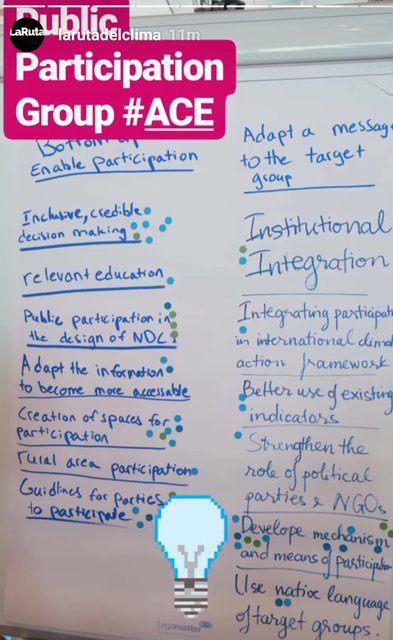 Public
LaRuta larutadelclima 11m
Participation
Group #ACE
Enable participation
Inclusive, credible
decision making
relevant education
Public participation in
the design of NDC
Adapt the information
to become more accessable
Creation of spaces for
participation
rural area participation
Guidlines for parties
to participate
Adapt a messag
to the target
group
Institutional
Integration
Integrating participat
in international clima
action framework
Better use of existing
indicators
Strengthen the
role of political
parties & NGOs
Develope mechanism
and means of participation
Use native language
of target groups.
Legamaster